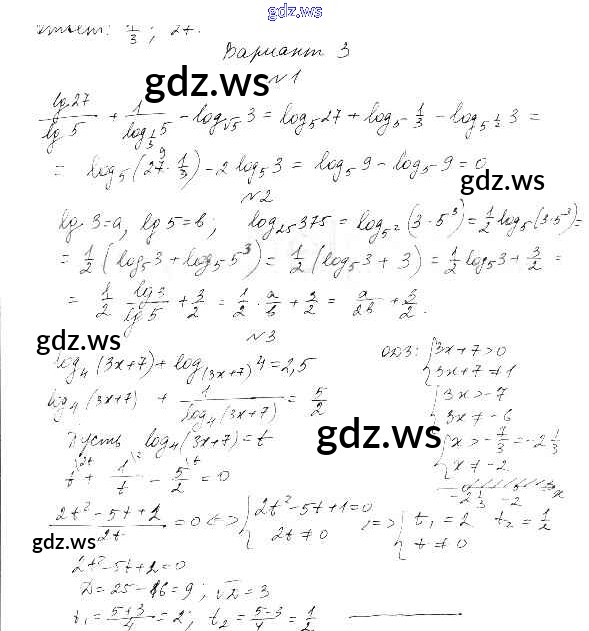 gdz.ws
Ответ: 1/3 ; 27.
Вариант 3
gdz.ws
№1
lg 27 / lg 5 + 1 / log_{1/3} 5 - log_{√5} 3 = log_5 27 + log_5 1/3 - log_{5^{1/2}} 3 =
= log_5 (27 · 1/3) - 2 log_5 3 = log_5 9 - log_5 9 = 0
gdz.ws
№2
lg 3 = a, lg 5 = b; log_{25} 375 = log_{5^2} (3 · 5^3) = 1/2 log_5 (3 · 5^3) =
= 1/2 (log_5 3 + log_5 5^3) = 1/2 (log_5 3 + 3) = 1/2 log_5 3 + 3/2 =
= 1/2 lg 3 / lg 5 + 3/2 = 1/2 · a/b + 3/2 = a/2b + 3/2.
gdz.ws
№3
log_4 (3x+7) + log_{(3x+7)} 4 = 2,5 ОДЗ: { 3x+7 > 0
3x+7 ≠ 1
log_4 (3x+7) + 1 / log_4 (3x+7) = 5/2 { 3x > -7
3x ≠ -6
gdz.ws
Пусть log_4 (3x+7) = t { x > -7/3 = -2 1/3
x ≠ -2
t + 1/t - 5/2 = 0
-2 1/3 -2 x
2t² - 5t + 2 / 2t = 0 <=> { 2t² - 5t + 1 = 0 <=> { t_1 = 2 t_2 = 1/2
2t ≠ 0 t ≠ 0
gdz.ws
2t² - 5t + 2 = 0
D = 25 - 16 = 9; √D = 3
t_1 = 5+3 / 4 = 2; t_2 = 5-3 / 4 = 1/2